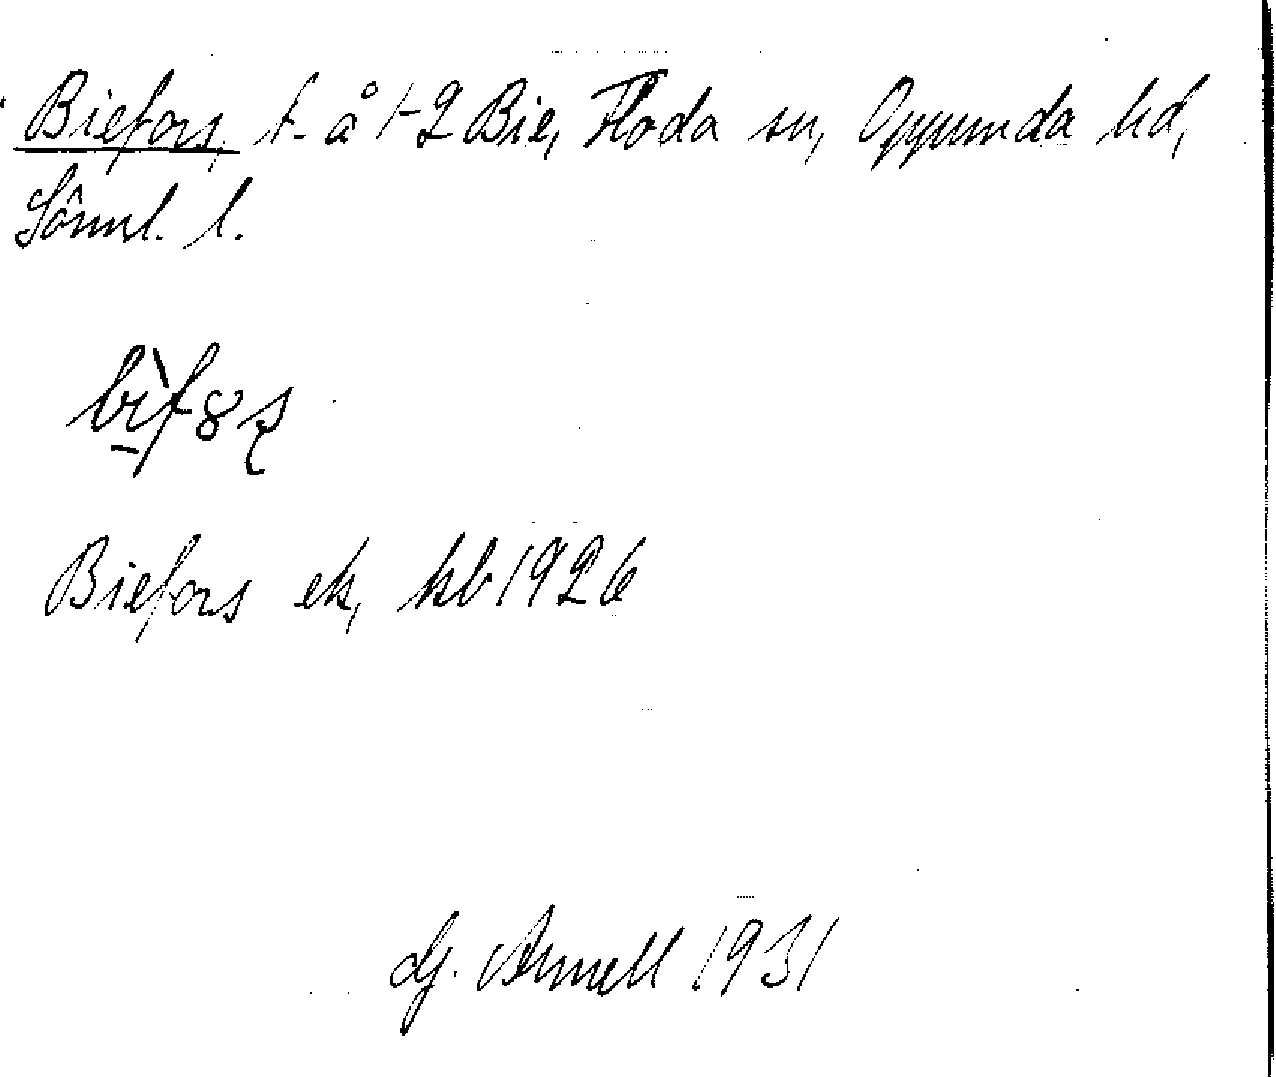 Biefors, t. å 1-2 Bie, Floda sn, Oppunda hd,
Sörml. l.
Biefors ek, kb 1926
Arnell 1931